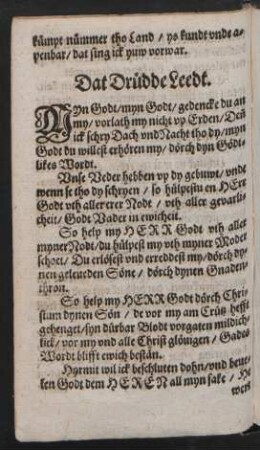 kümpt nümmer tho Land / ys kundt vndt a-
penbar / dat sing ick yuw vorwar.
Dat Drüdde Leedt.
MYn Godt / myn Godt / gedencke du an
my / vorlath my nicht vp Erden / Deñ
ick schry Dach vnd Nacht tho dy / myn
Godt du willest erhören my / dörch dyn Gödt-
likes Wordt.
Vnse Veder hebben vp dy gebuwt / vndt
wenn se tho dy schryen / so hülpestu en HErr
Godt vth aller erer Nodt / vth aller gevarli-
cheit / Godt Vader in ewicheit.
So help my HERR Godt vth aller
myner Nodt / du hülpest my vth myner Moder
schoet / Du erlösest vnd erreddest my / dörch dy-
nen geleueden Söne / dörch dynen Gnaden-
thron.
So help my HERR Godt dörch Chri-
stum dynen Sön / de vor my am Crütz hefft
gehenget / syn dürbar Blodt vorgaten mildich-
lick / vor my vnd alle Christ glöuigen / Gades
Wordt blifft ewich bestån.
Hyrmit wil ick beschluten dohn / vnd beue-
len Godt dem HEREN all myn sake / He
wert